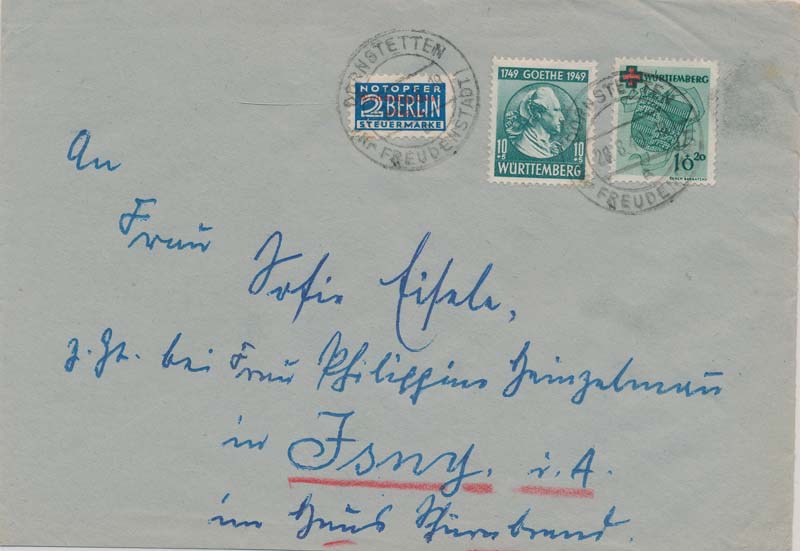 DORNSTETTEN
Kr. FREUDENSTADT
NOTOPFER
2 BERLIN
STEUERMARKE
1749 GOETHE 1949
10 +5 10 +5
WÜRTTEMBERG
WÜRTTEMBERG
10 +20
DORNSTETTEN
Kr. FREUDENSTADT
An
Frau
Sofie Eisele,
z. Zt. bei Frau Philippine Heinzelmann
in
Isny. i. A.
im Haus Schürnbrand.